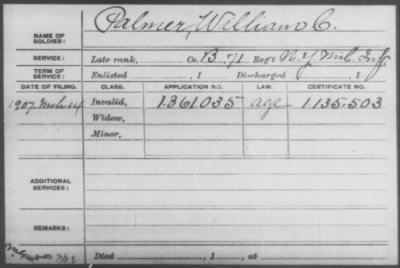 NAME OF SOLDIER: Palmer, William C.
SERVICE: Late rank, Co. B. 71 Reg't N.Y. Mil. Inf.
TERM OF SERVICE: Enlisted , 1 Discharged , 1
DATE OF FILING. CLASS. APPLICATION NO. LAW. CERTIFICATE NO.
1907 Mch 14 Invalid, 1.361.035 age 1.135.503
Widow,
Minor,
ADDITIONAL SERVICES:
REMARKS:
Died , 1 , at